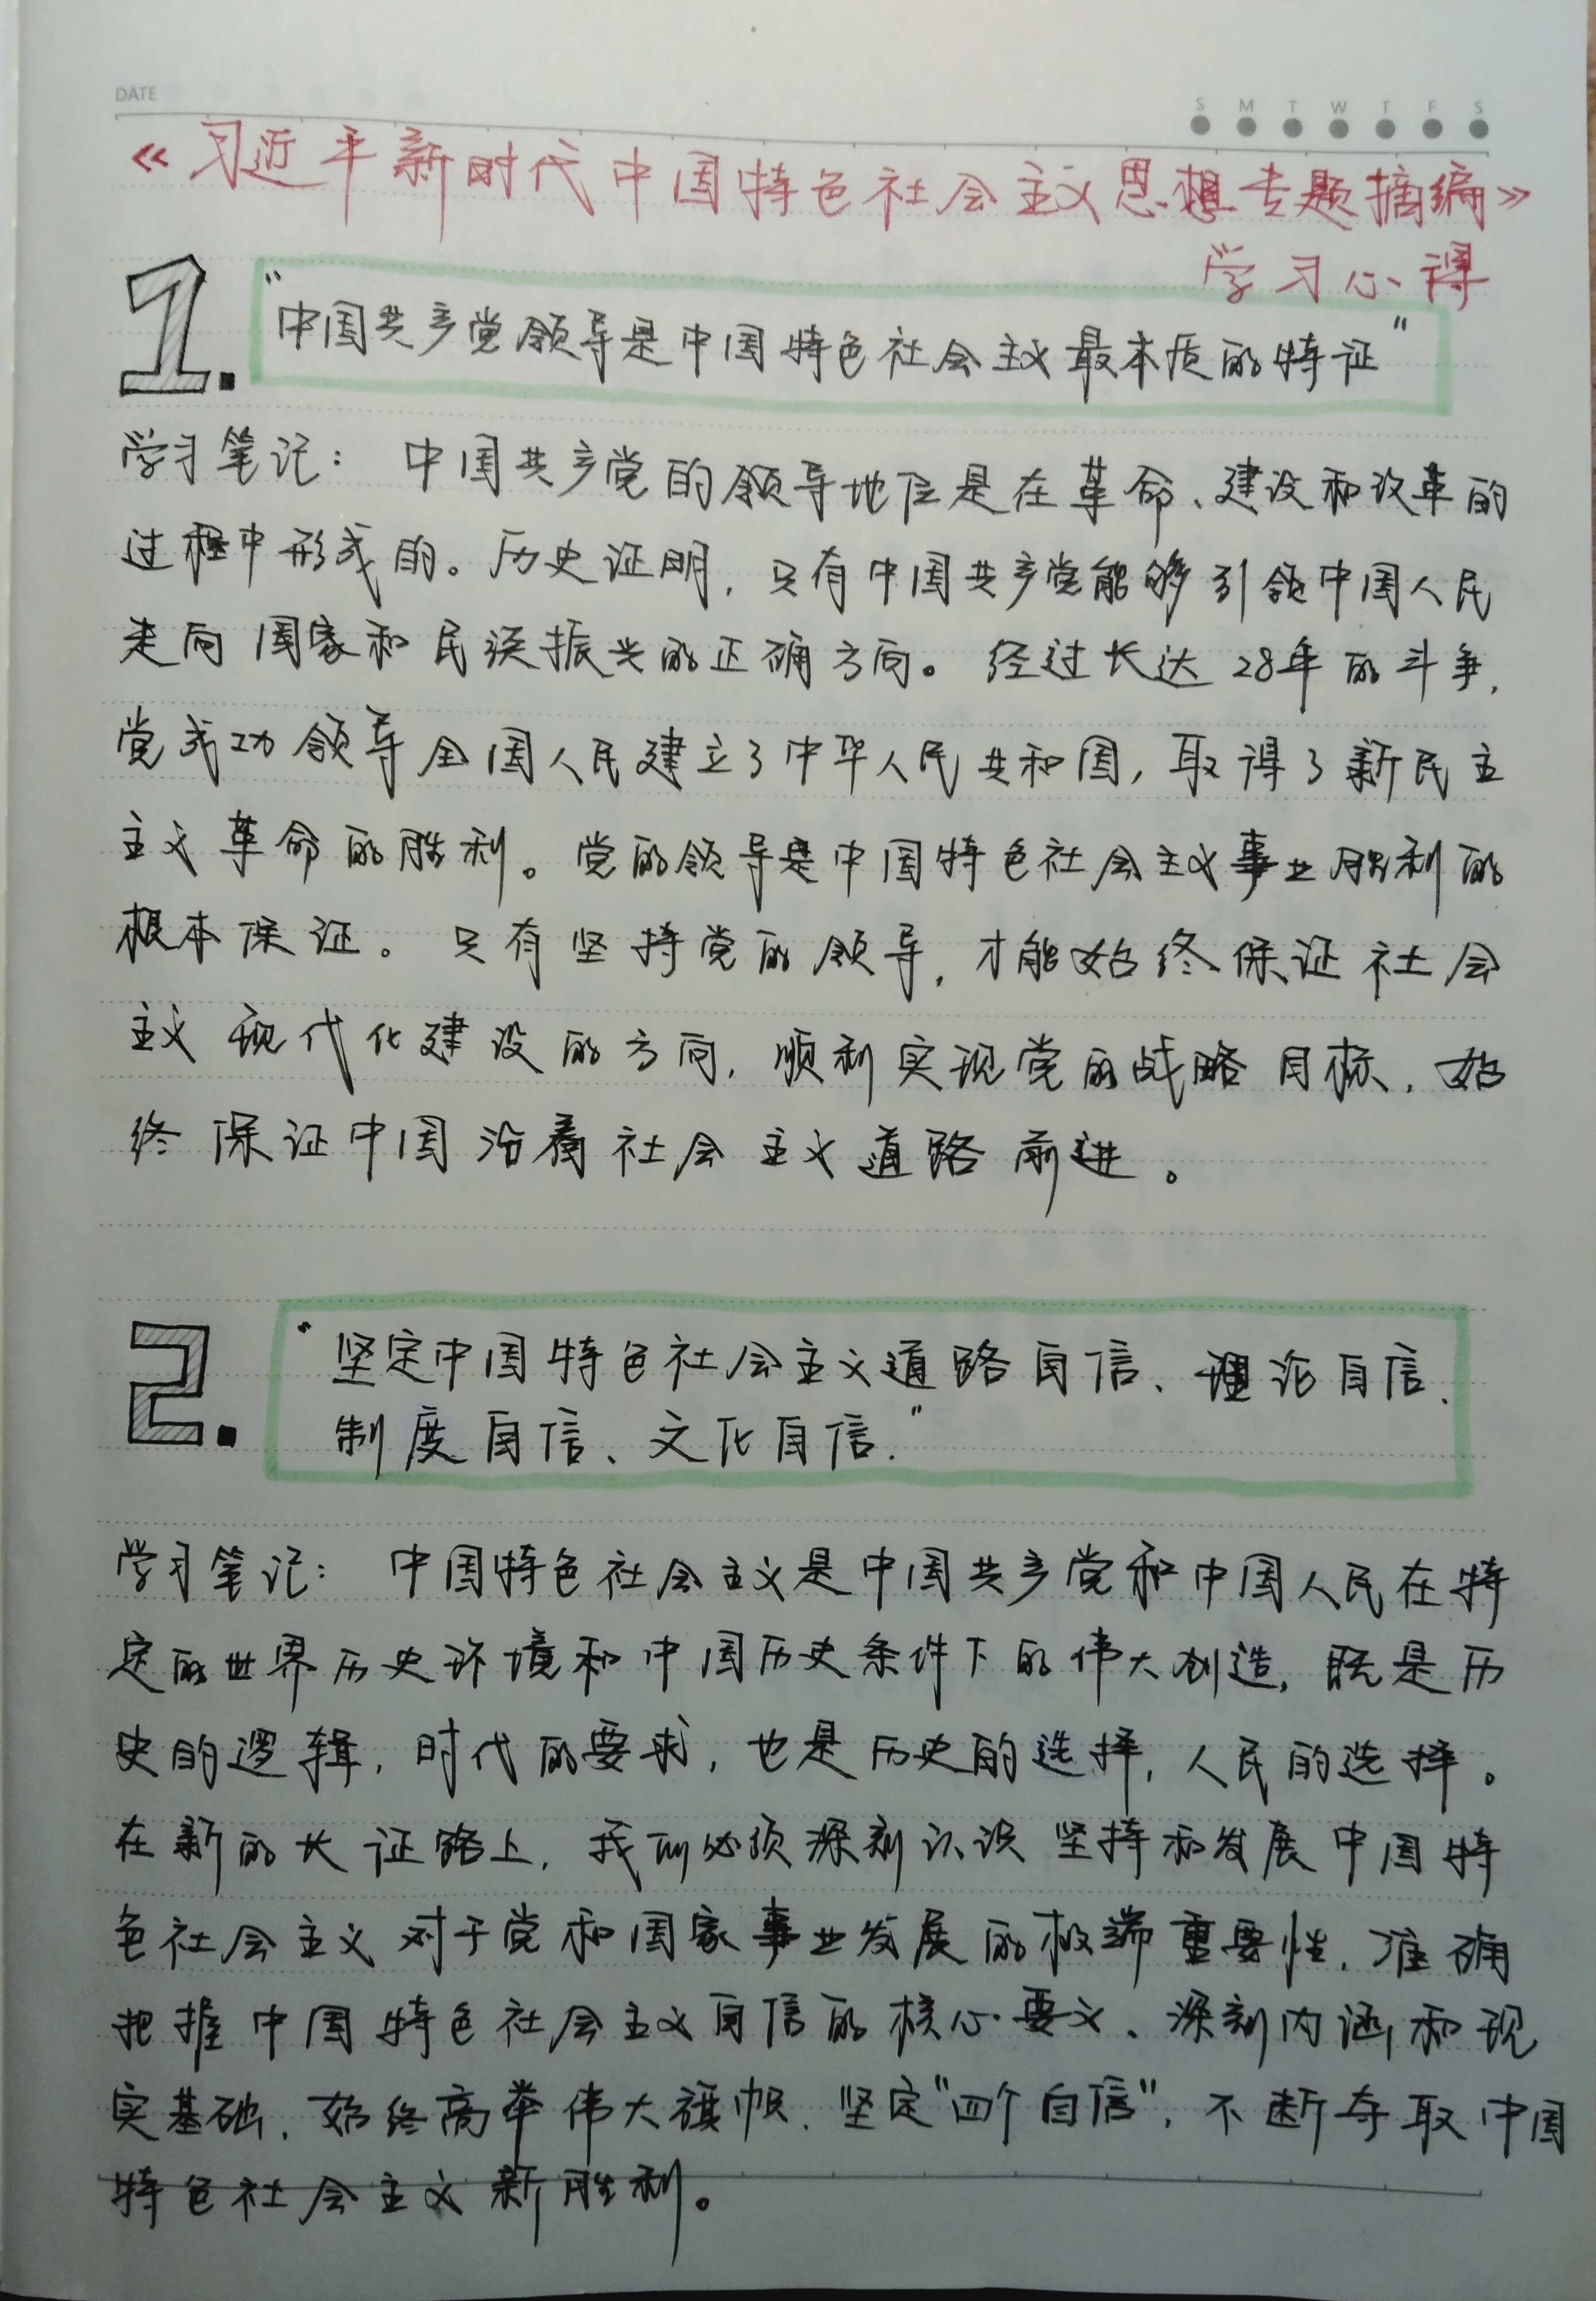 DATE
S M T W T F S
《习近平新时代中国特色社会主义思想专题摘编》
学习心得
1. “中国共产党领导是中国特色社会主义最本质的特证”
学习笔记：中国共产党的领导地位是在革命、建设和改革的
过程中形成的。历史证明，只有中国共产党能够引领中国人民
走向国家和民族振兴的正确方向。经过长达28年的斗争，
党成功领导全国人民建立了中华人民共和国，取得了新民主
主义革命的胜利。党的领导是中国特色社会主义事业胜利的
根本保证。只有坚持党的领导，才能始终保证社会
主义现代化建设的方向，顺利实现党的战略目标，始
终保证中国沿着社会主义道路前进。
2. “坚定中国特色社会主义道路自信、理论自信、
制度自信、文化自信.”
学习笔记：中国特色社会主义是中国共产党和中国人民在特
定的世界历史环境和中国历史条件下的伟大创造，既是历
史的逻辑，时代的要求，也是历史的选择，人民的选择。
在新的长证路上，我们必须深刻认识坚持和发展中国特
色社会主义对于党和国家事业发展的极端重要性，准确
把握中国特色社会主义自信的核心要义、深刻内涵和现
实基础，始终高举伟大旗帜、坚定“四个自信”，不断夺取中国
特色社会主义新胜利。